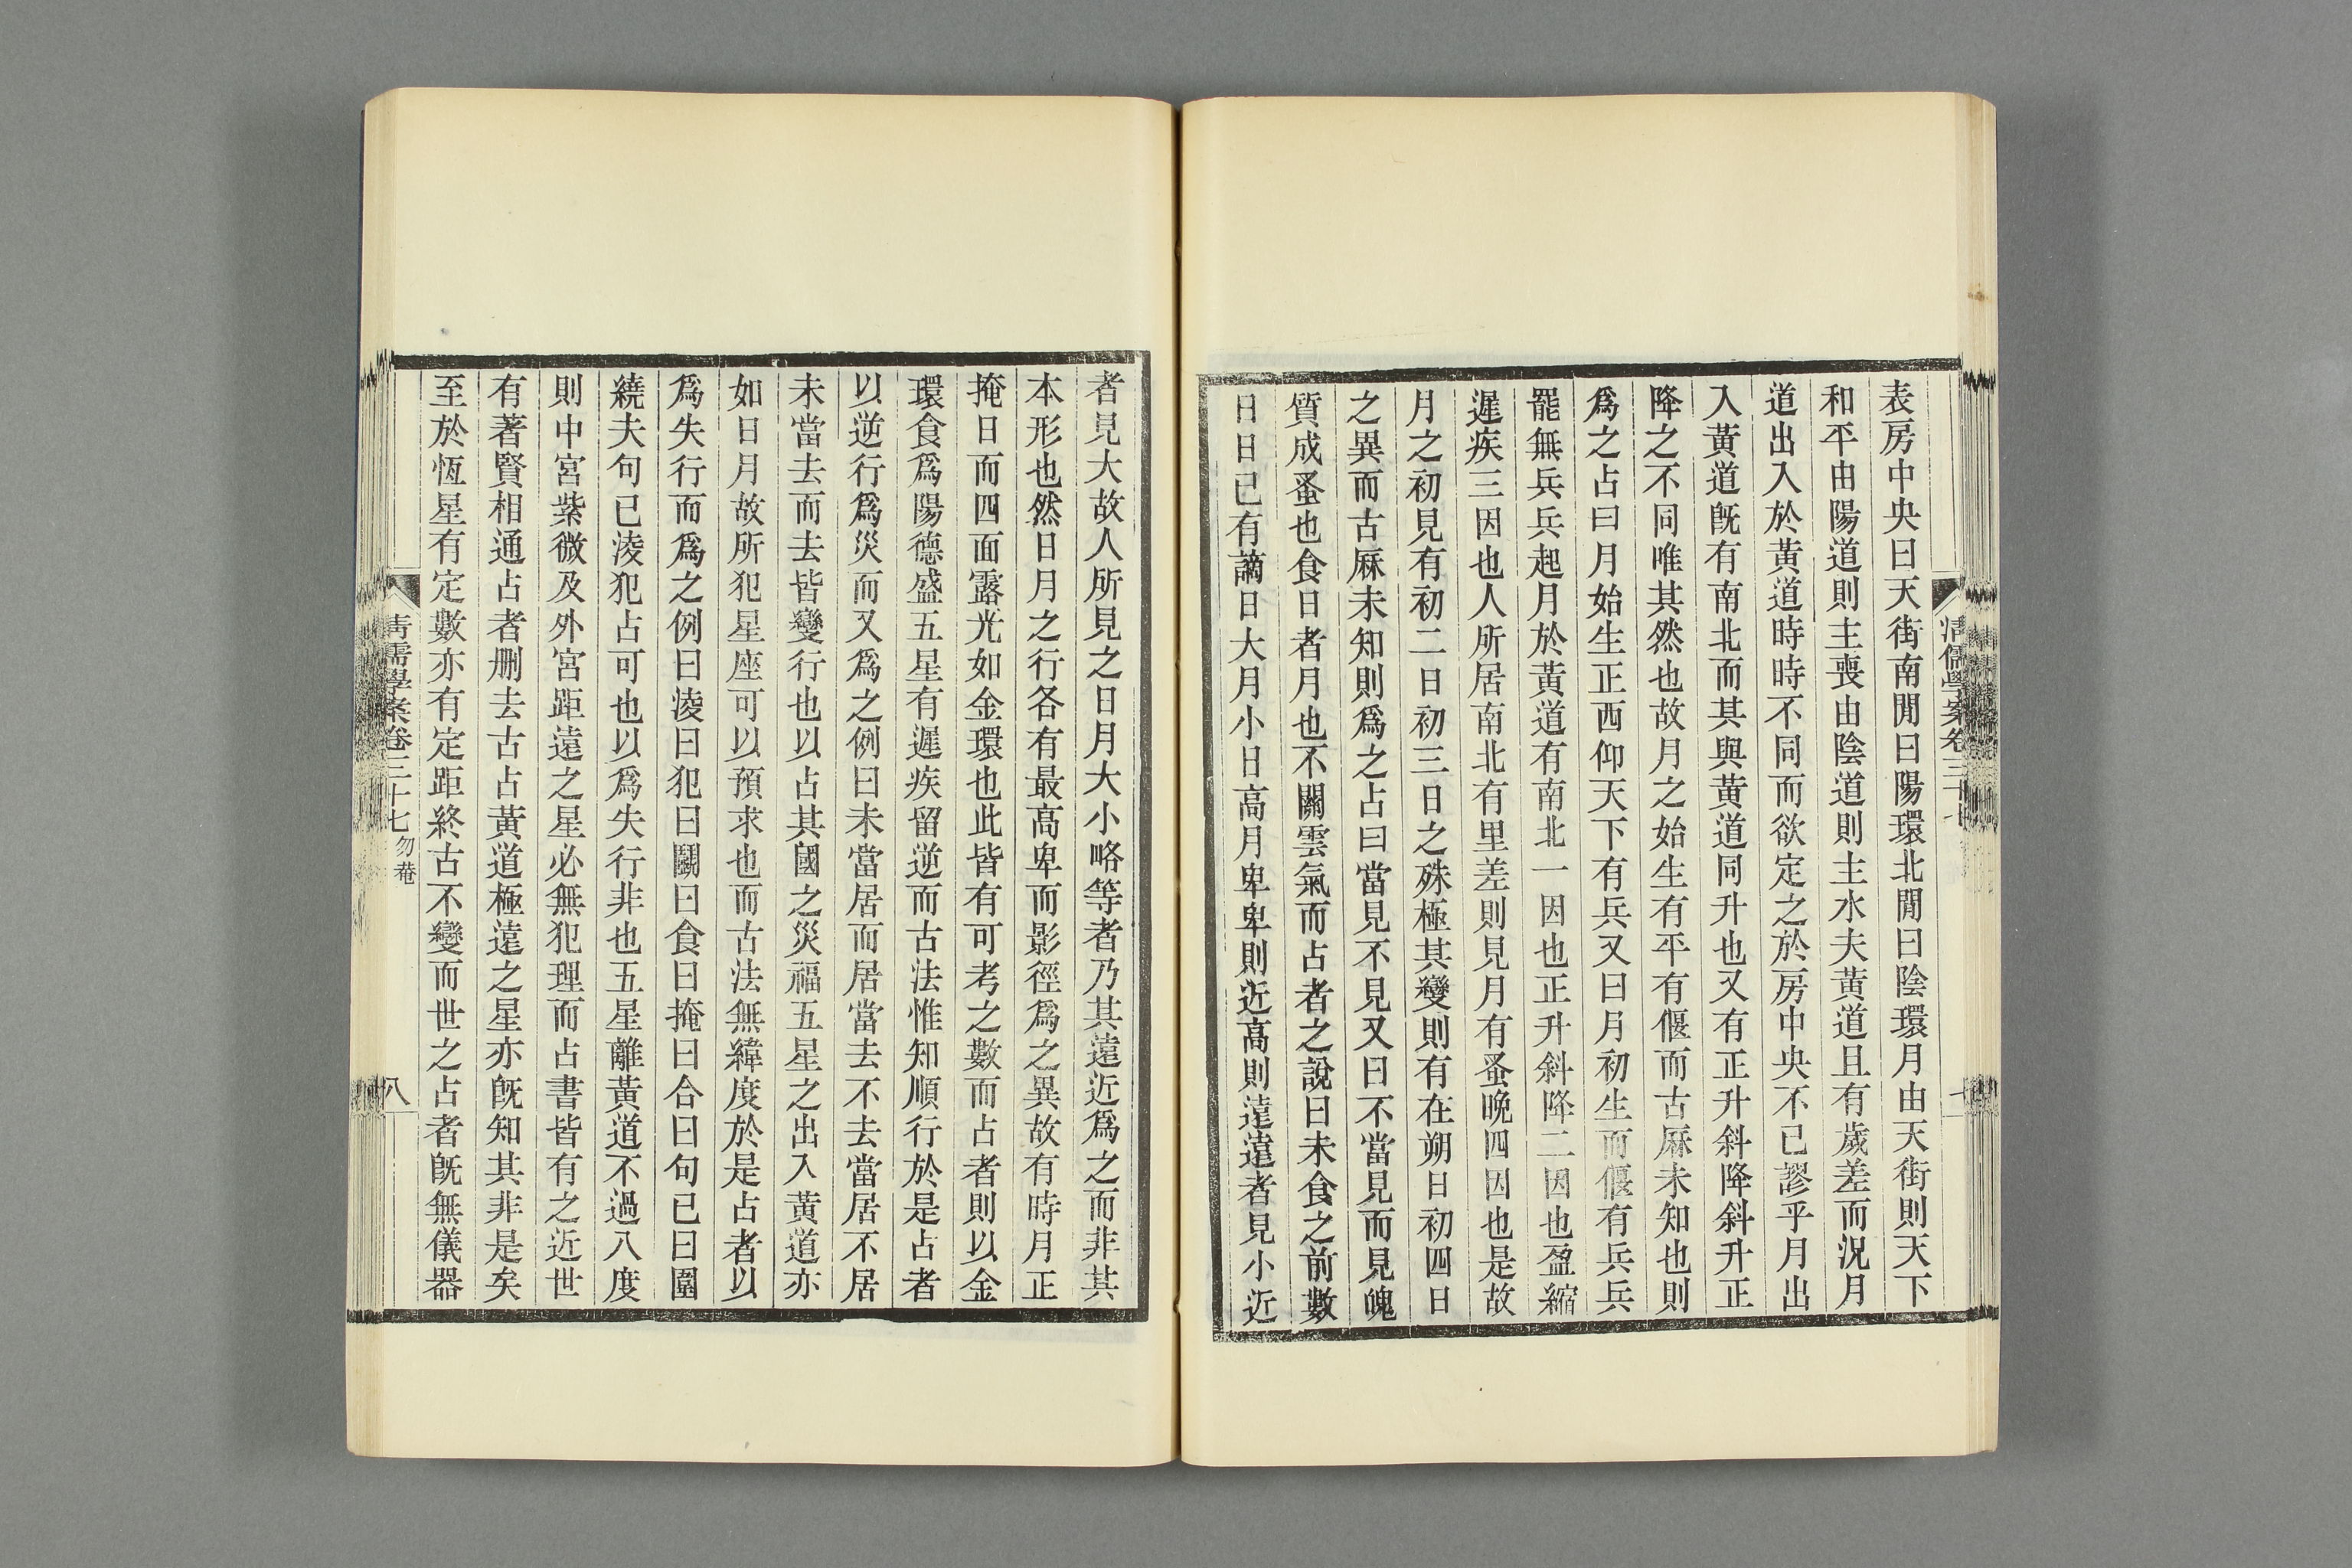 清儒學案卷三十七
表房中央曰天街南閒曰陽環北閒曰陰環月由天街則天下
和平由陽道則主喪由陰道則主水夫黃道且有歲差而況月
道出入於黃道時時不同而欲定之於房中央不已謬乎月出
入黃道旣有南北而其與黃道同升也又有正升斜降斜升正
降之不同唯其然也故月之始生有平有偃而古厤未知也則
爲之占曰月始生正西仰天下有兵又曰月初生而偃有兵兵
罷無兵兵起月於黃道有南北一因也正升斜降二因也盈縮
遲疾三因也人所居南北有里差則見月有蚤晚四因也是故
月之初見有初二日初三日之殊極其變則有在朔日初四日
之異而古厤未知則爲之占曰當見不見又曰不當見而見魄
質成蚤也食日者月也不關雲氣而占者之說曰未食之前數
日日已有謫日大月小日高月卑卑則近高則遠遠者見小近
者見大故人所見之日月大小略等者乃其遠近爲之而非其
本形也然日月之行各有最高卑而影徑爲之異故有時月正
掩日而四面露光如金環也此皆有可考之數而占者則以金
環食爲陽德盛五星有遲疾留逆而古法惟知順行於是占者
以逆行爲災而又爲之例曰未當居而居當去不去當居不居
未當去而去皆變行也以占其國之災福五星之出入黃道亦
如日月故所犯星座可以預求也而古法無緯度於是占者以
爲失行而爲之例曰淩曰犯曰鬭曰食曰掩曰合曰句已曰圍
繞夫句已淩犯占可也以爲失行非也五星離黃道不過八度
則中宮紫微及外宮距遠之星必無犯理而占書皆有之近世
有著賢相通占者删去古占黃道極遠之星亦旣知其非是矣
至於恆星有定數亦有定距終古不變而世之占者旣無儀器
清儒學案卷三十七 勿菴
八